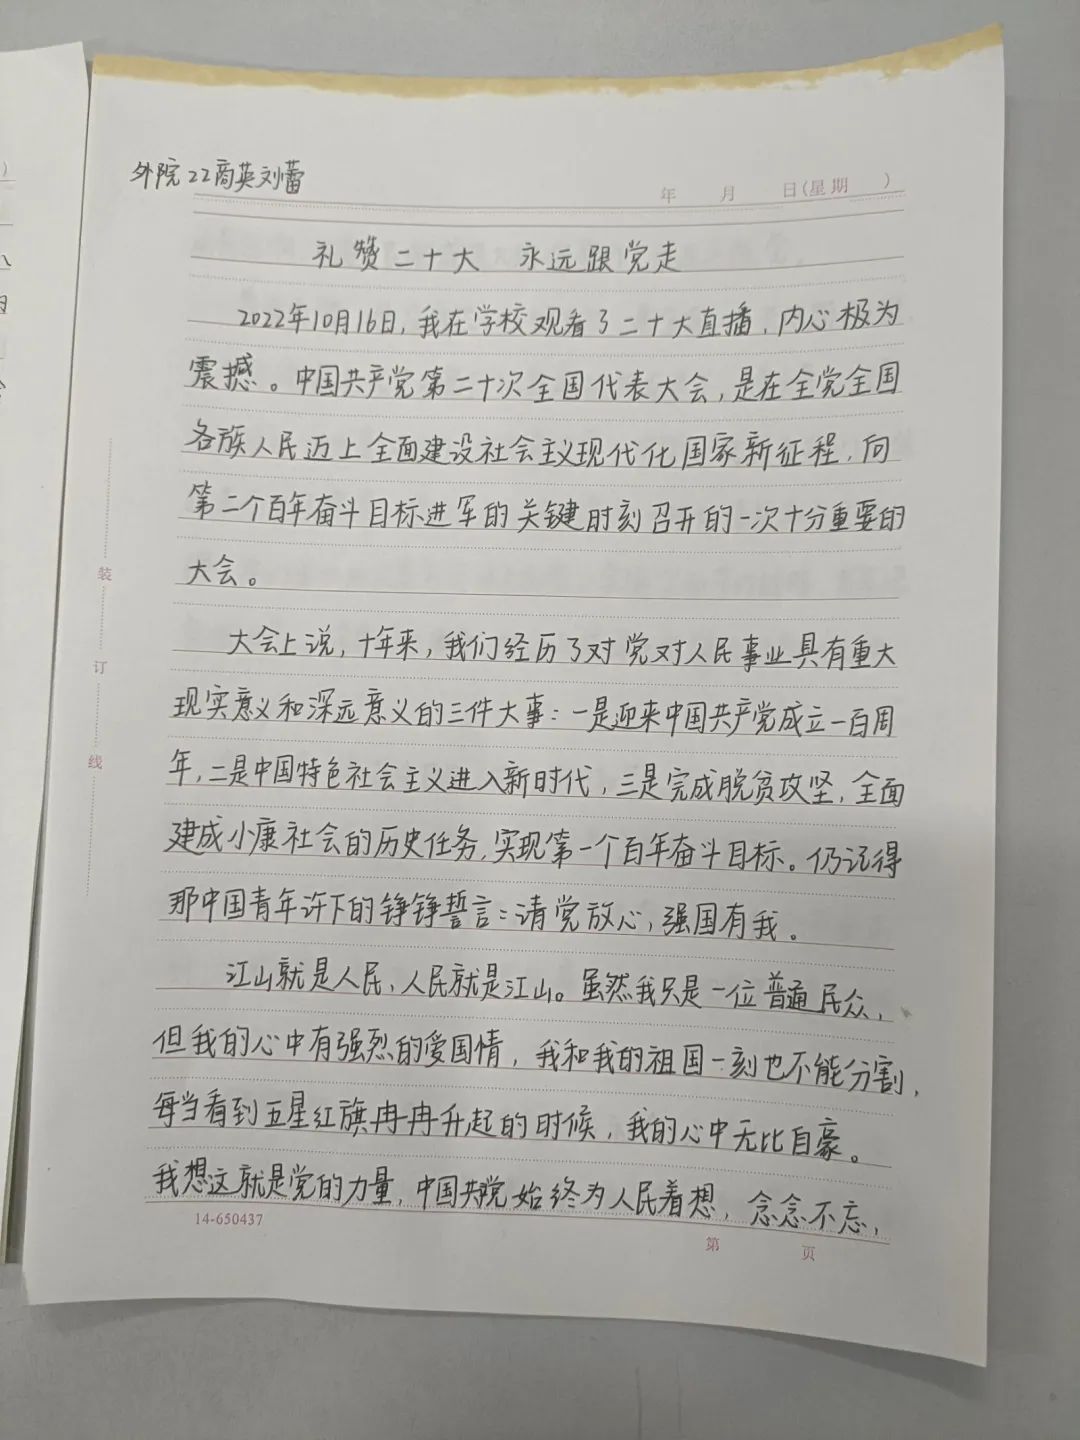 外院22商英刘蕾
年 月 日(星期 )
礼赞二十大 永远跟党走
2022年10月16日,我在学校观看了二十大直播,内心极为
震撼。中国共产党第二十次全国代表大会,是在全党全国
各族人民迈上全面建设社会主义现代化国家新征程,向
第二个百年奋斗目标进军的关键时刻召开的一次十分重要的
大会。
大会上说,十年来,我们经历了对党对人民事业具有重大
现实意义和深远意义的三件大事:一是迎来中国共产党成立一百周
年,二是中国特色社会主义进入新时代,三是完成脱贫攻坚,全面
建成小康社会的历史任务,实现第一个百年奋斗目标。仍记得
那中国青年许下的铮铮誓言:请党放心,强国有我。
江山就是人民,人民就是江山。虽然我只是一位普通民众,
但我的心中有强烈的爱国情,我和我的祖国一刻也不能分割,
每当看到五星红旗冉冉升起的时候,我的心中无比自豪。
我想这就是党的力量,中国共党始终为人民着想,念念不忘,
14-650437
第 页
装
订
线